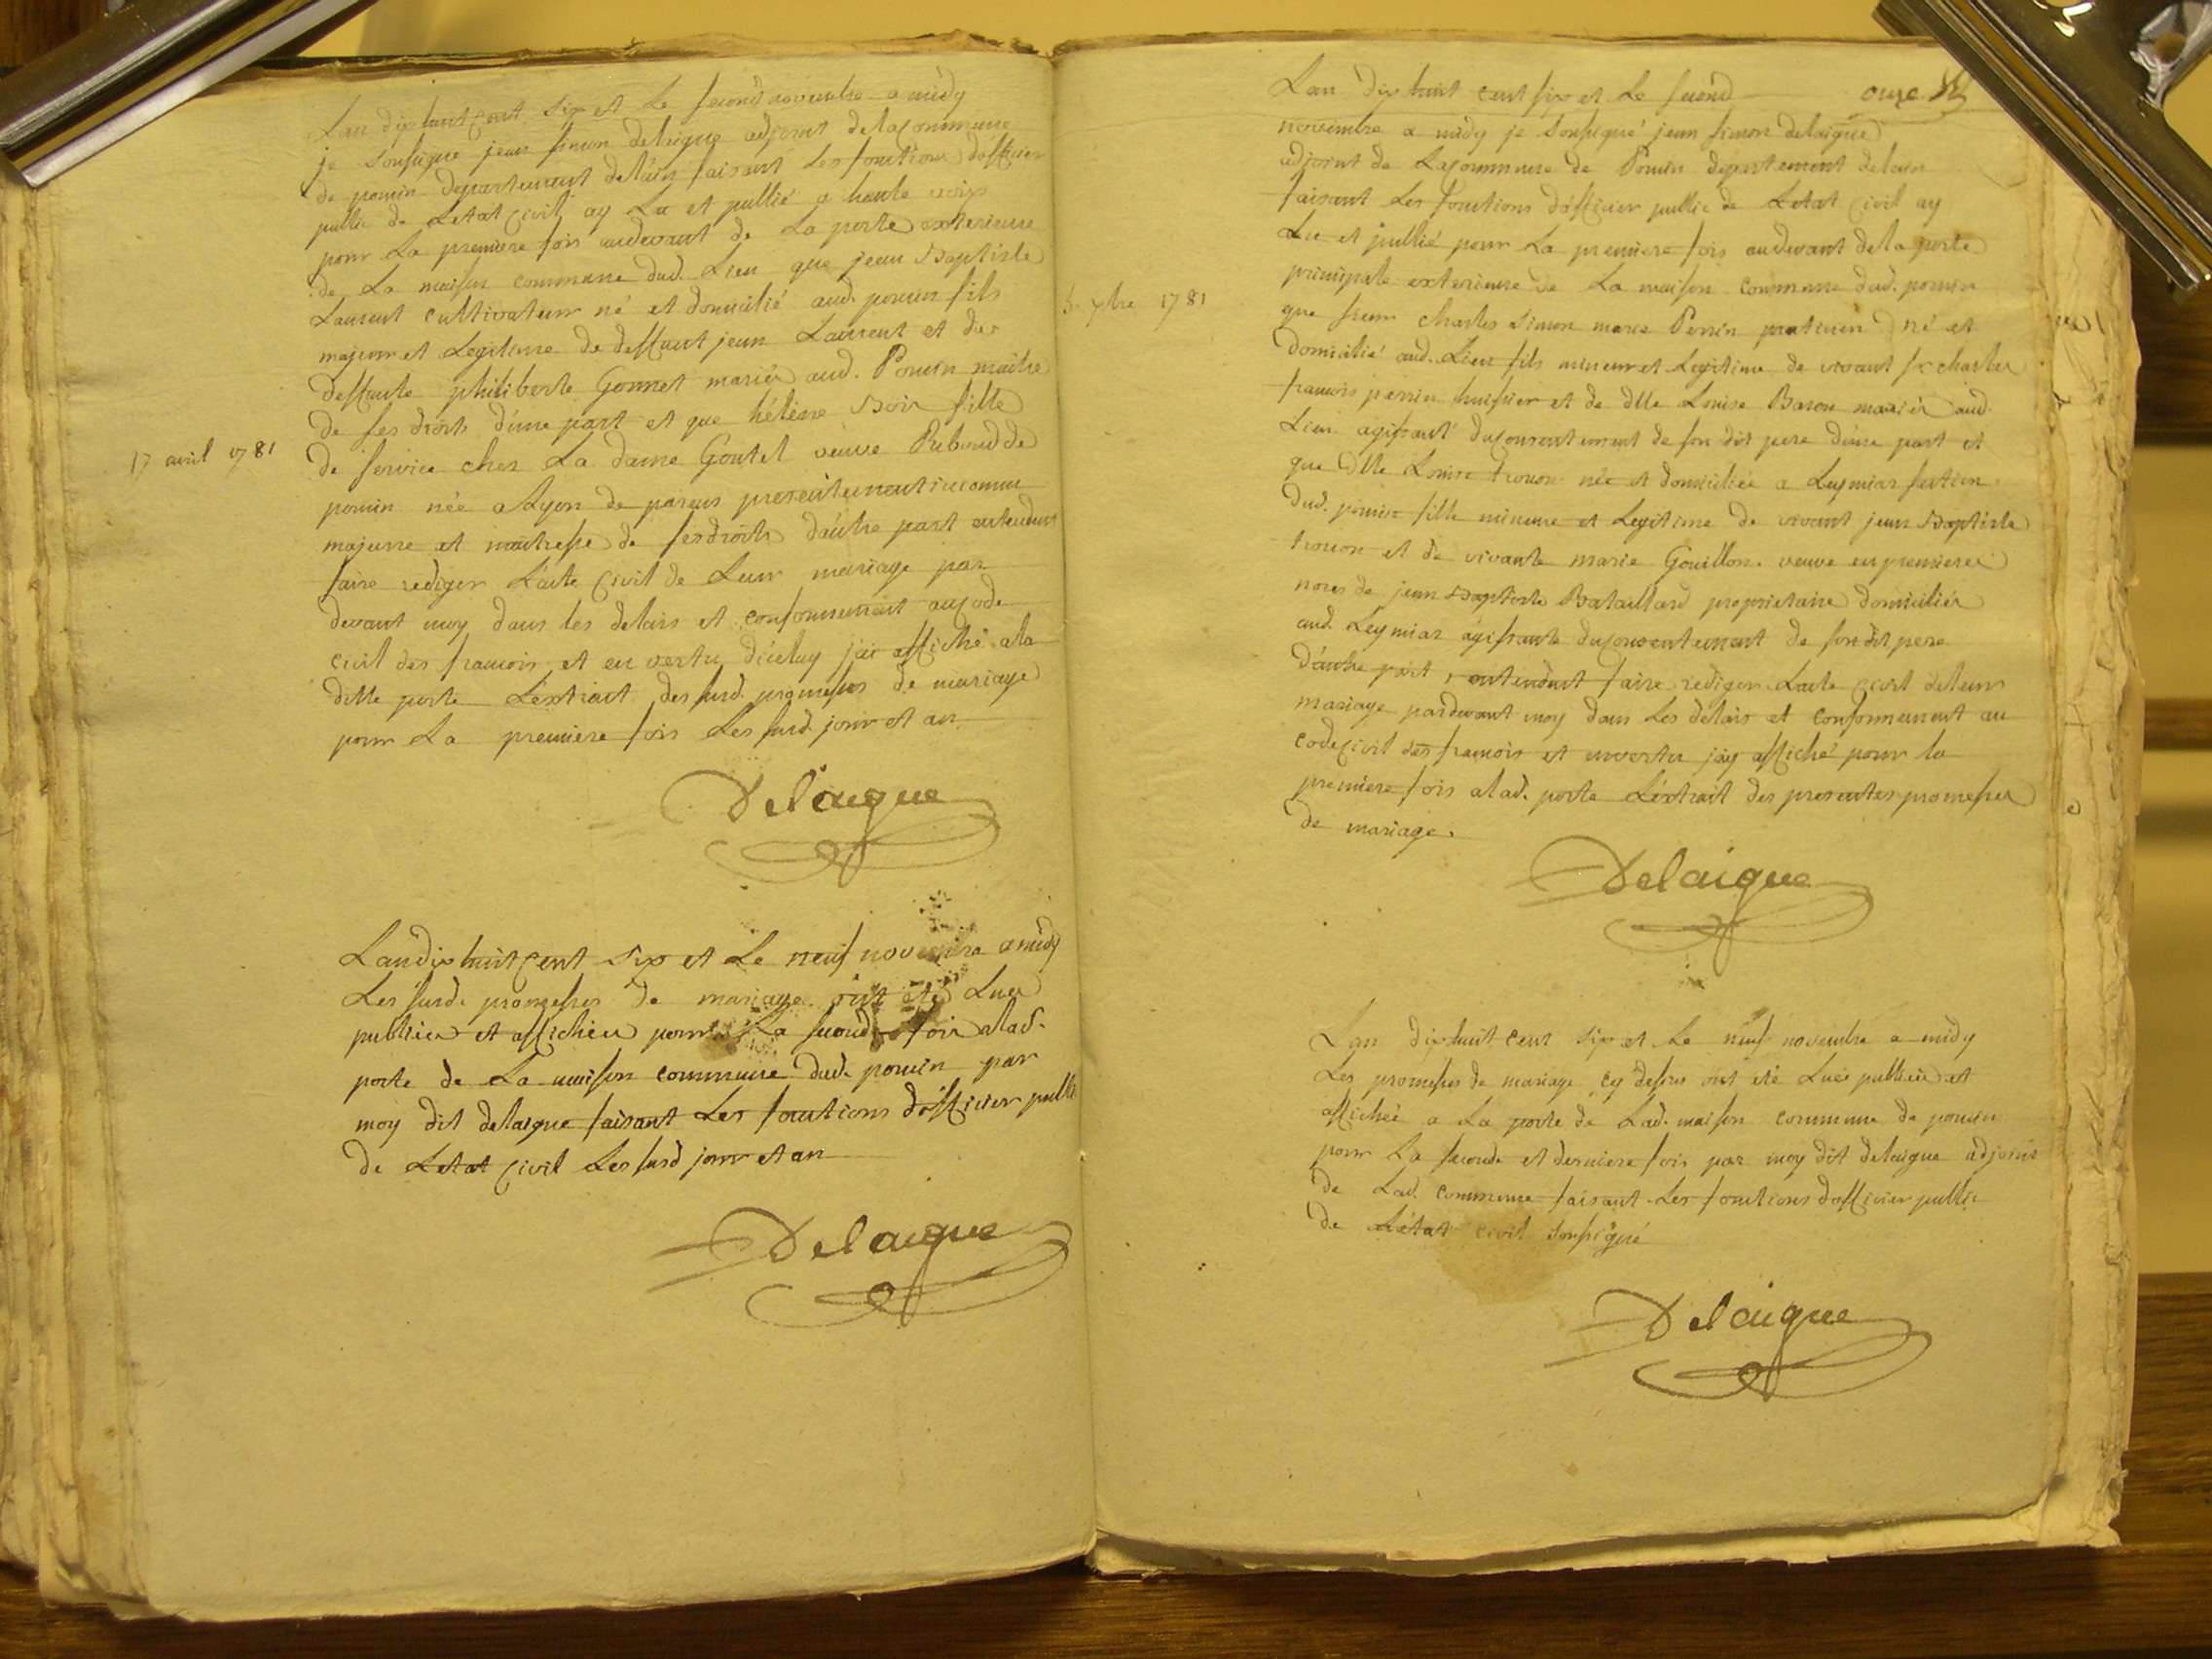 Lan dix huit cent six et le second novembre a midy
je soussigné jean simon delaigue adjoint de la commune
de poncin departement de l'ain faisant les fonctions d'officier
public de Letat civil ay Lu et publié a haute voix
pour La premiere fois audevant de La porte exterieure
de La maison commune dud. Lieu que jean Baptiste
Laurent cultivateur né et domicilié aud. poncin fils
majeur et Legitime de deffunt jean Laurent et de
deffunte philiberte Gonnet mariés aud. Poncin maitre
de ses droits d'une part et que hélène Bois fille
de service chez La dame Goutel veuve de
17 avril 1781
poncin née a Lyon de parens presentement inconnu
majeure et maitresse de ses droits d'autre part entendent
faire rediger Lacte civil de Leur mariage par
devant moy dans les delais et conformement au code
civil des francois et en vertu d'iceluy j'ai affiché a la
ditte porte Lextrait des susd. promesses de mariage
pour La premiere fois Les susd. jour et an
Delaigue
Lan dix huit cent six et Le neuf novembre a midy
Les susd. promesses de mariage ont eté Lues
publiées et affichées pour La seconde fois alad.
porte de La maison commune dud. poncin par
moy dit delaigue faisant Les fonctions d'officier public
de Letat civil Les susd jour et an
Delaigue
onze
Lan dix huit cent six et Le second
novembre a midy je soussigné jean simon delaigue
adjoint de La commune de Poncin departement delain
faisant Les fonctions d'officier public de Letat civil ay
Lu et publié pour La premiere fois audevant de la porte
principale exterieure de La maison commune dud. poncin
7bre 1781
que sieur charles simon marie Perrin praticien né et
domicilié aud. Lieu fils mineur et Legitime de vivant sr charles
francois perrin huissier et de dlle Louise Baron mariés aud.
Lieu agissant du consentement de son dit pere d'une part et
que dlle Louise trouon née et domiciliée a Leymiat section
dud. poncin fille mineure et Legitime de vivant jean Baptiste
trouon et de vivante marie Gouillon veuve en premieres
noces de jean Baptiste Bataillard proprietaire domiciliés
aud. Leymiat agissante du consentement de son dit pere
d'autre part, entendent faire rediger Lacte civil de leur
mariage pardevant moy dans Les delais et conformement au
code civil des francois et en vertu jay affiché pour la
premiere fois alad. porte Lextrait des presentes promesses
de mariage.
Delaigue
Lan dix huit cent six et Le neuf novembre a midy
Les promesses de mariage cy dessus ont eté Lues publiées et
affichée a La porte de Lad. maison commune de poncin
pour La seconde et derniere fois par moy dit delaigue adjoint
de Lad. commune faisant Les fonctions d'officier public
de Létat civil soussigné
Delaigue